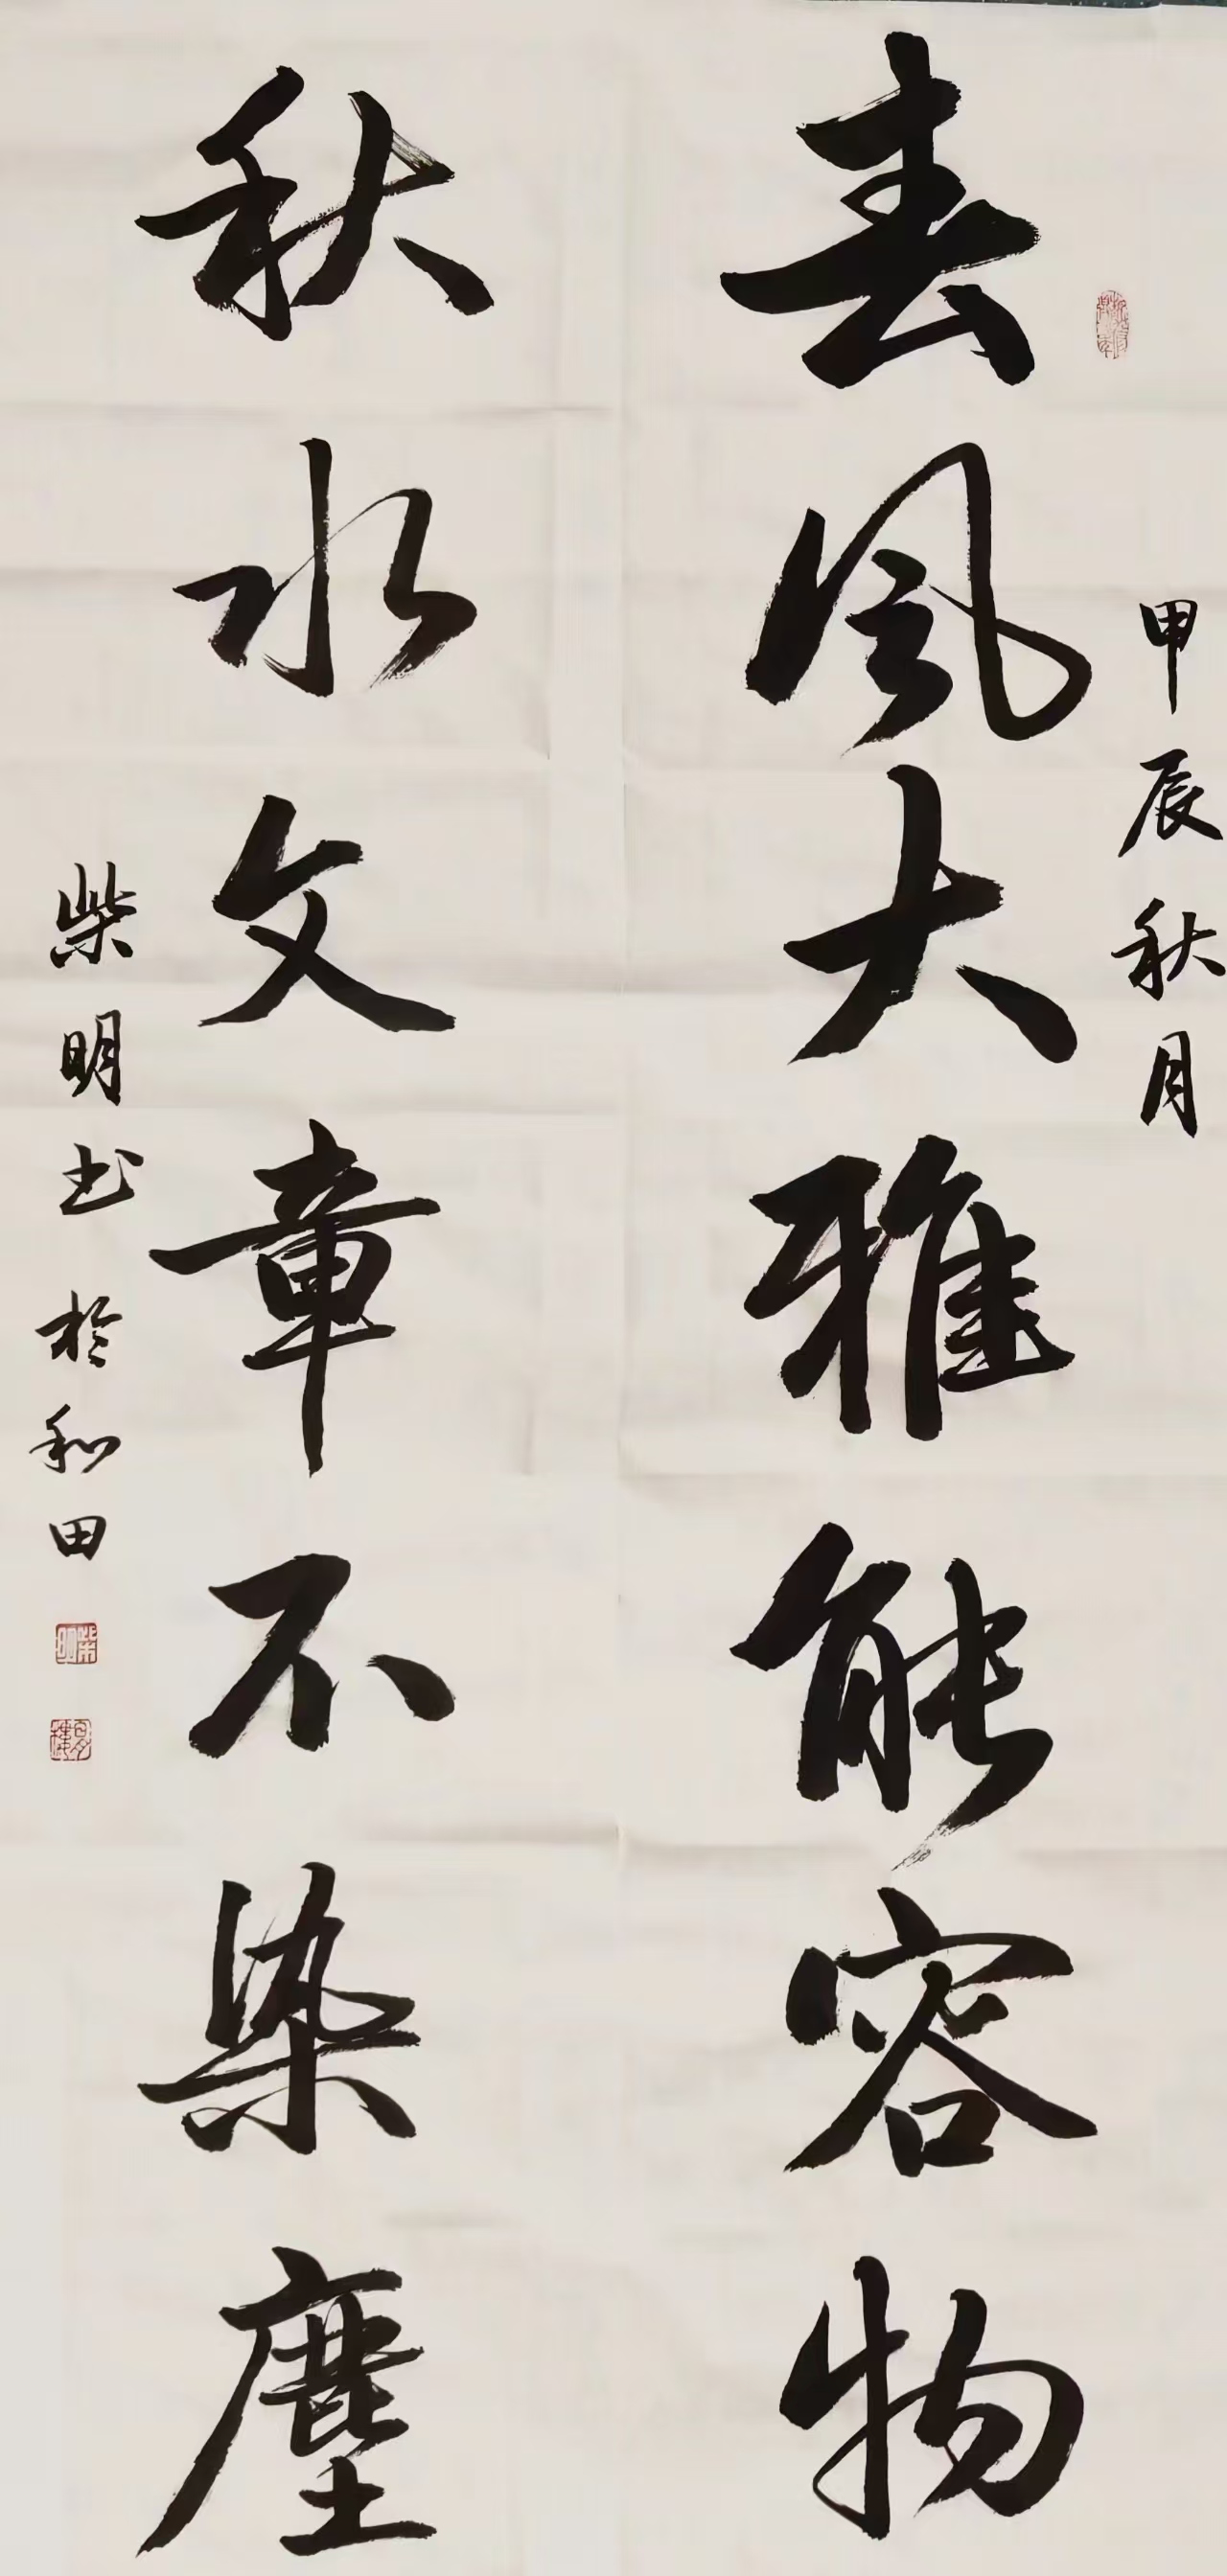 甲辰秋月
春風大雅能容物
秋水文章不染塵
柴明书於和田
柴明